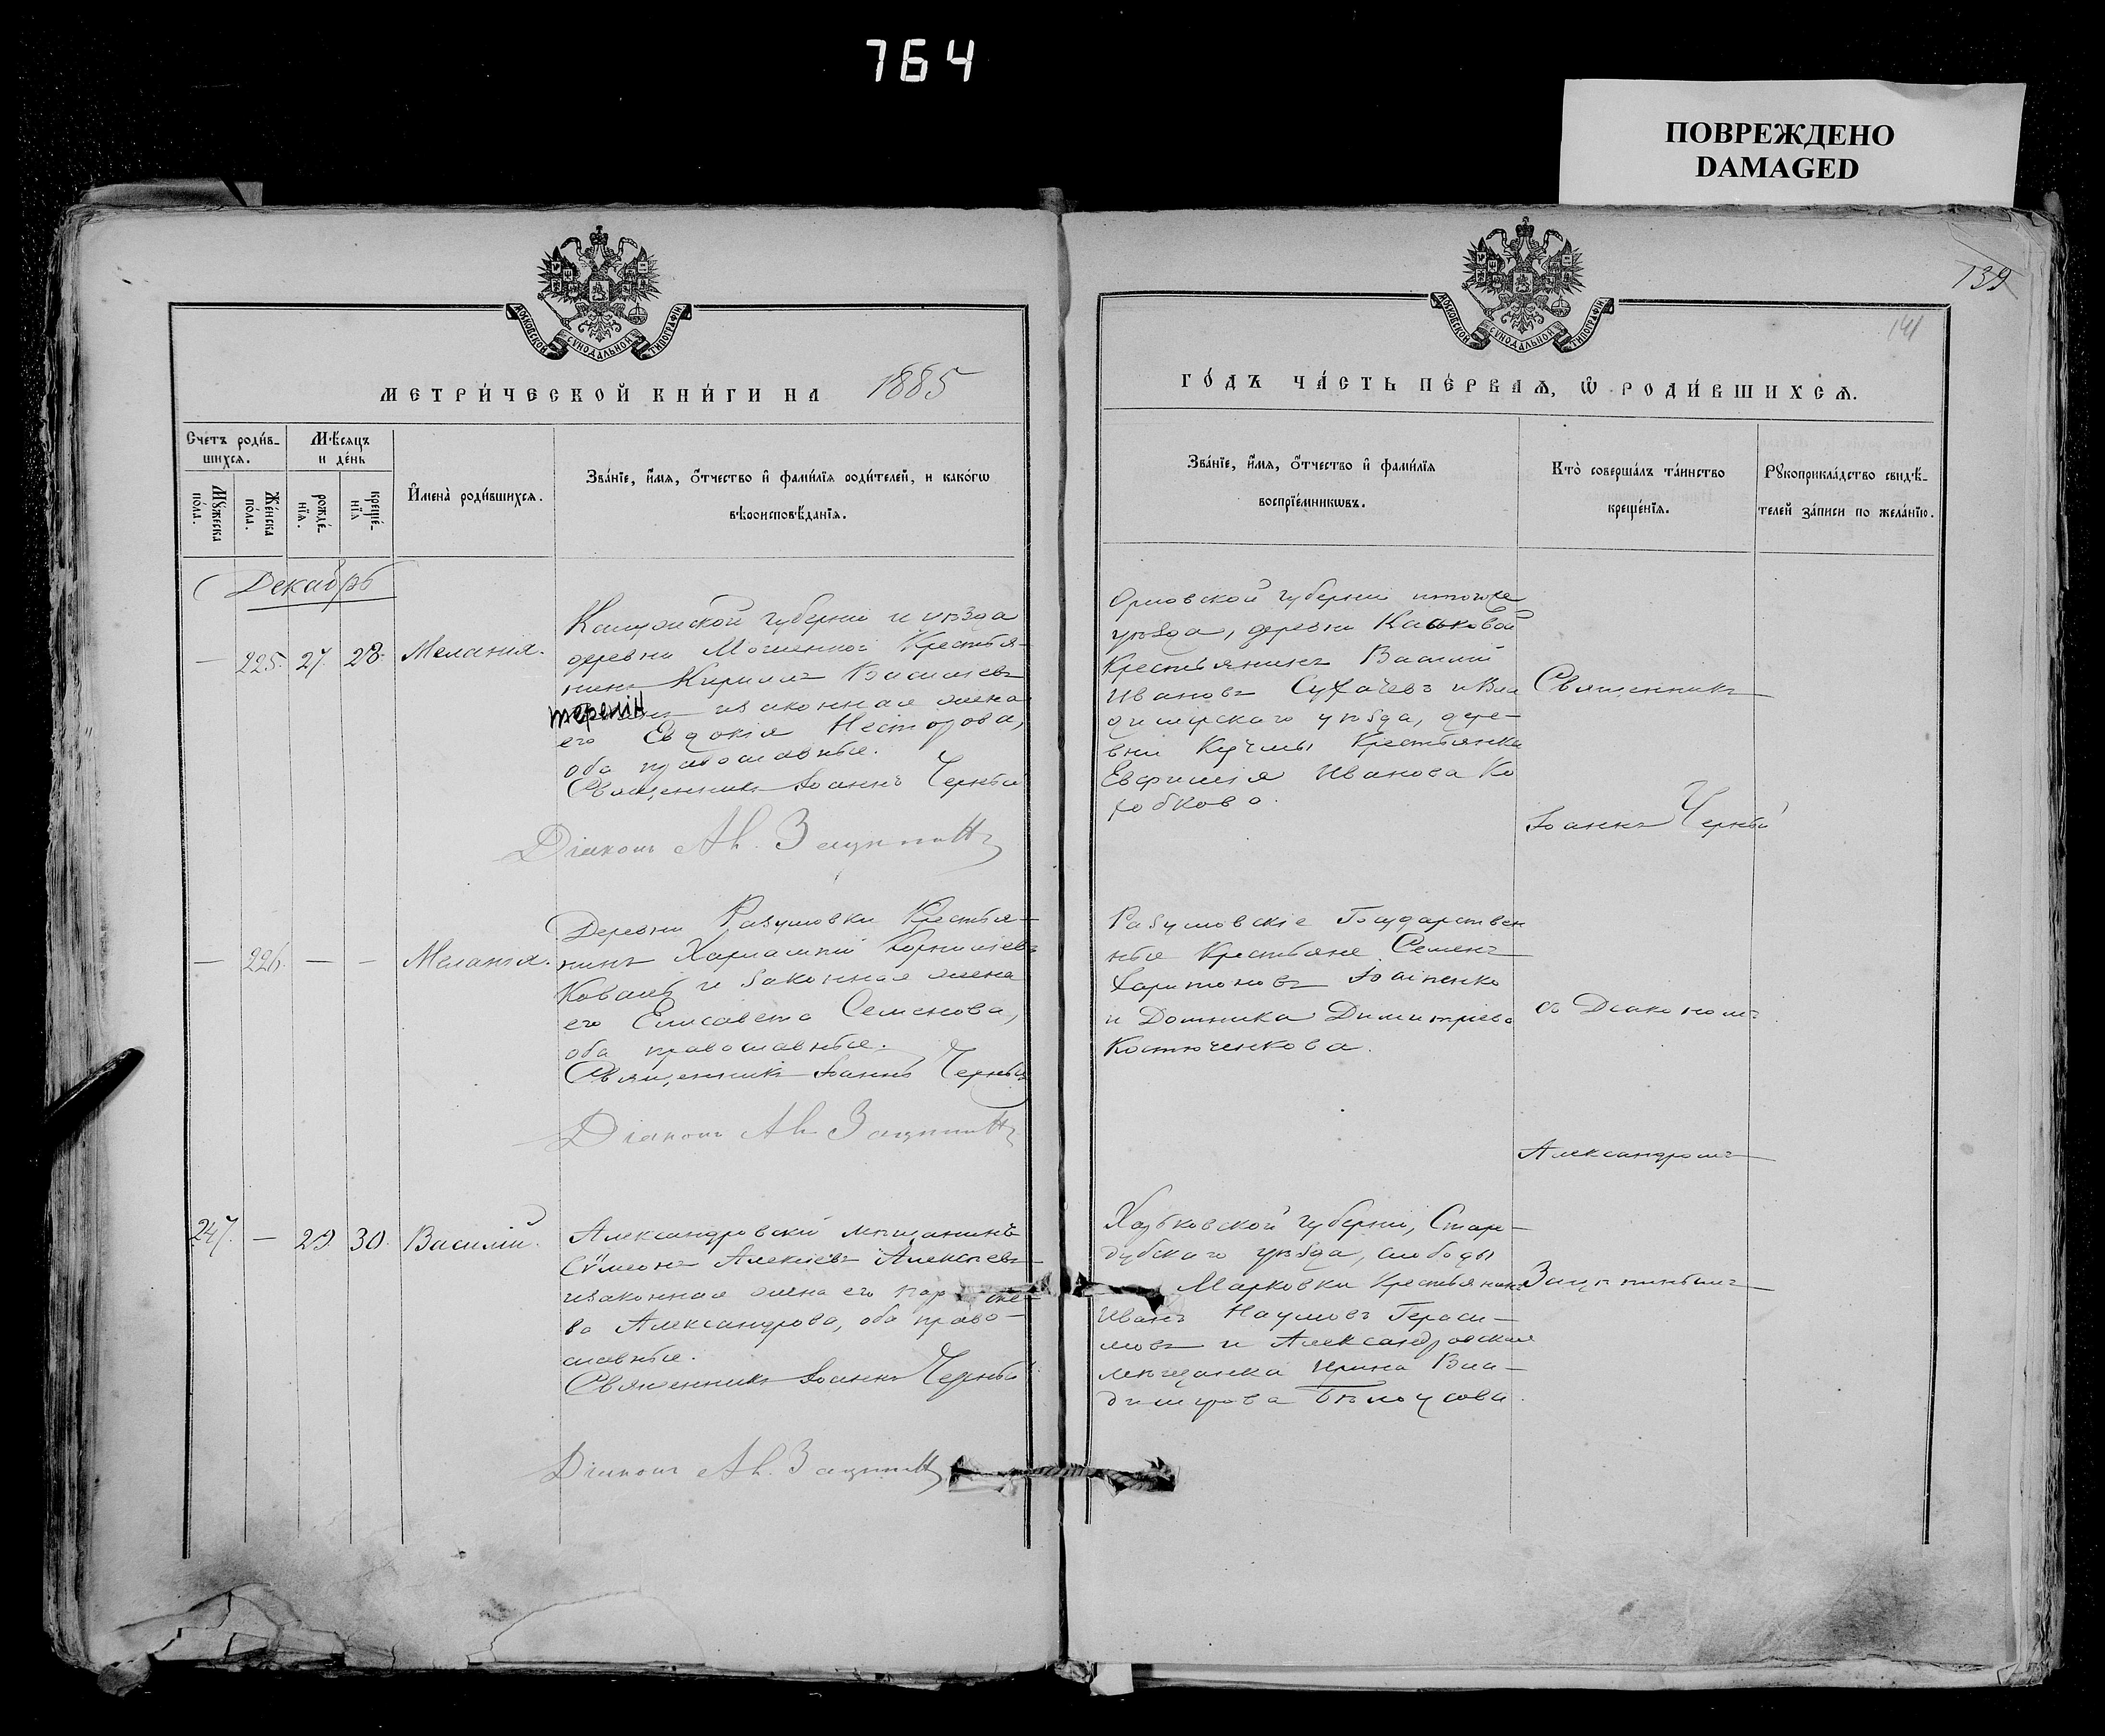 764
ПОВРЕЖДЕНО
DAMAGED
139
141
МОСКОВСКОЙ СѴНОДАЛЬНОЙ ТИПОГРАФІИ
МОСКОВСКОЙ СѴНОДАЛЬНОЙ ТИПОГРАФІИ
МЕТРИ́ЧЕСКОЙ КНИ́ГИ НА 1885
ГО́ДЪ ЧА́СТЬ ПЕ́РВАѦ, Ѡ РОДИ́ВШИХСѦ.
Счетъ роди́в-
шихсѧ.
Мѣ́сѧцъ
и де́нь
Мꙋ́жеска
по́ла.
Же́нска
по́ла.
рожде́-
нїѧ.
креще́-
нїѧ
И҆мена̀ роди́вшихсѧ.
Зва́нїе, и҆́мѧ, ѻ҆́тчество и҆ фами́лїѧ роди́телей, и како́гѡ
вѣроисповѣ́данїѧ.
Зва́нїе, и҆́мѧ, ѻ҆́тчество и҆ фами́лїѧ
воспрїе́мникѡвъ.
Кто̀ соверша́лъ та́инство
креще́нїѧ.
Рꙋкоприкла́дство свидѣ́-
телей за́писи по жела́нїю.
Декабрь
— 225. 27. 28. Меланія.
Калужской губерніи и уѣзда
деревни Крестья-
нинъ Кириллъ Васильевъ
терешн и законная жена
его Евдокія Несторова,
оба православные.
Священникъ Іоаннъ Черный
Діаконъ Ал.
Орловской губерніи тогоже
уѣзда, деревни
Крестьянинъ Василій
Ивановъ Сухачевъ и Вла
димірскаго уѣзда, дере-
вни Крестьянка
Евфимія Иванова Ко
робкова.
Священникъ
Іоаннъ Черный
— 226. — — Меланія.
Деревни Разумовки Крестья-
нинъ Харлампій Корнильевъ
Коваль и законная жена
его Елисавета Семенова,
оба православные.
Священникъ Іоаннъ Черный
Діаконъ Ал.
Разумовскіе Государствен
ные Крестьяне Семенъ
Харитоновъ
и Домника Димитріева
Костюченкова.
съ Діакономъ
Александромъ
247. — 29. 30. Василій.
Александровскій мѣщанинъ
Сѵмеонъ Алексіевъ Алексѣевъ
и законная жена его Пар
ва Александрова, оба право-
славные.
Священникъ Іоаннъ Черный
Діаконъ Ал.
Харьковской губерніи, Старо-
бѣльскаго уѣзда, слободы
Марковки Крестьянинъ
Иванъ Наумовъ Гераси-
мовъ и Александровская
мѣщанка Ирина Вла-
димірова Бѣлоусова.